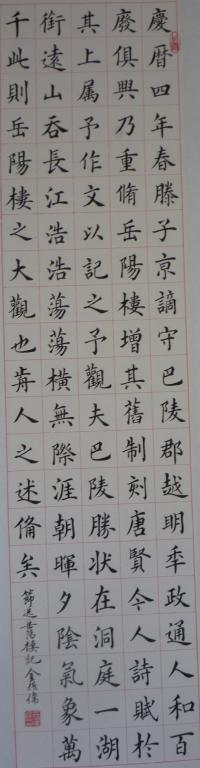 慶曆四年春滕子京謫守巴陵郡越明秊政通人和百
廢俱興乃重脩岳陽樓增其舊制刻唐賢今人詩賦扵
其上属予作文以記之予觀夫巴陵勝状在洞庭一湖
銜遠山吞長江浩浩蕩蕩橫無際涯朝暉夕陰氣象萬
千此則岳陽樓之大觀也歬人之述俻矣
節选岳陽樓記 金